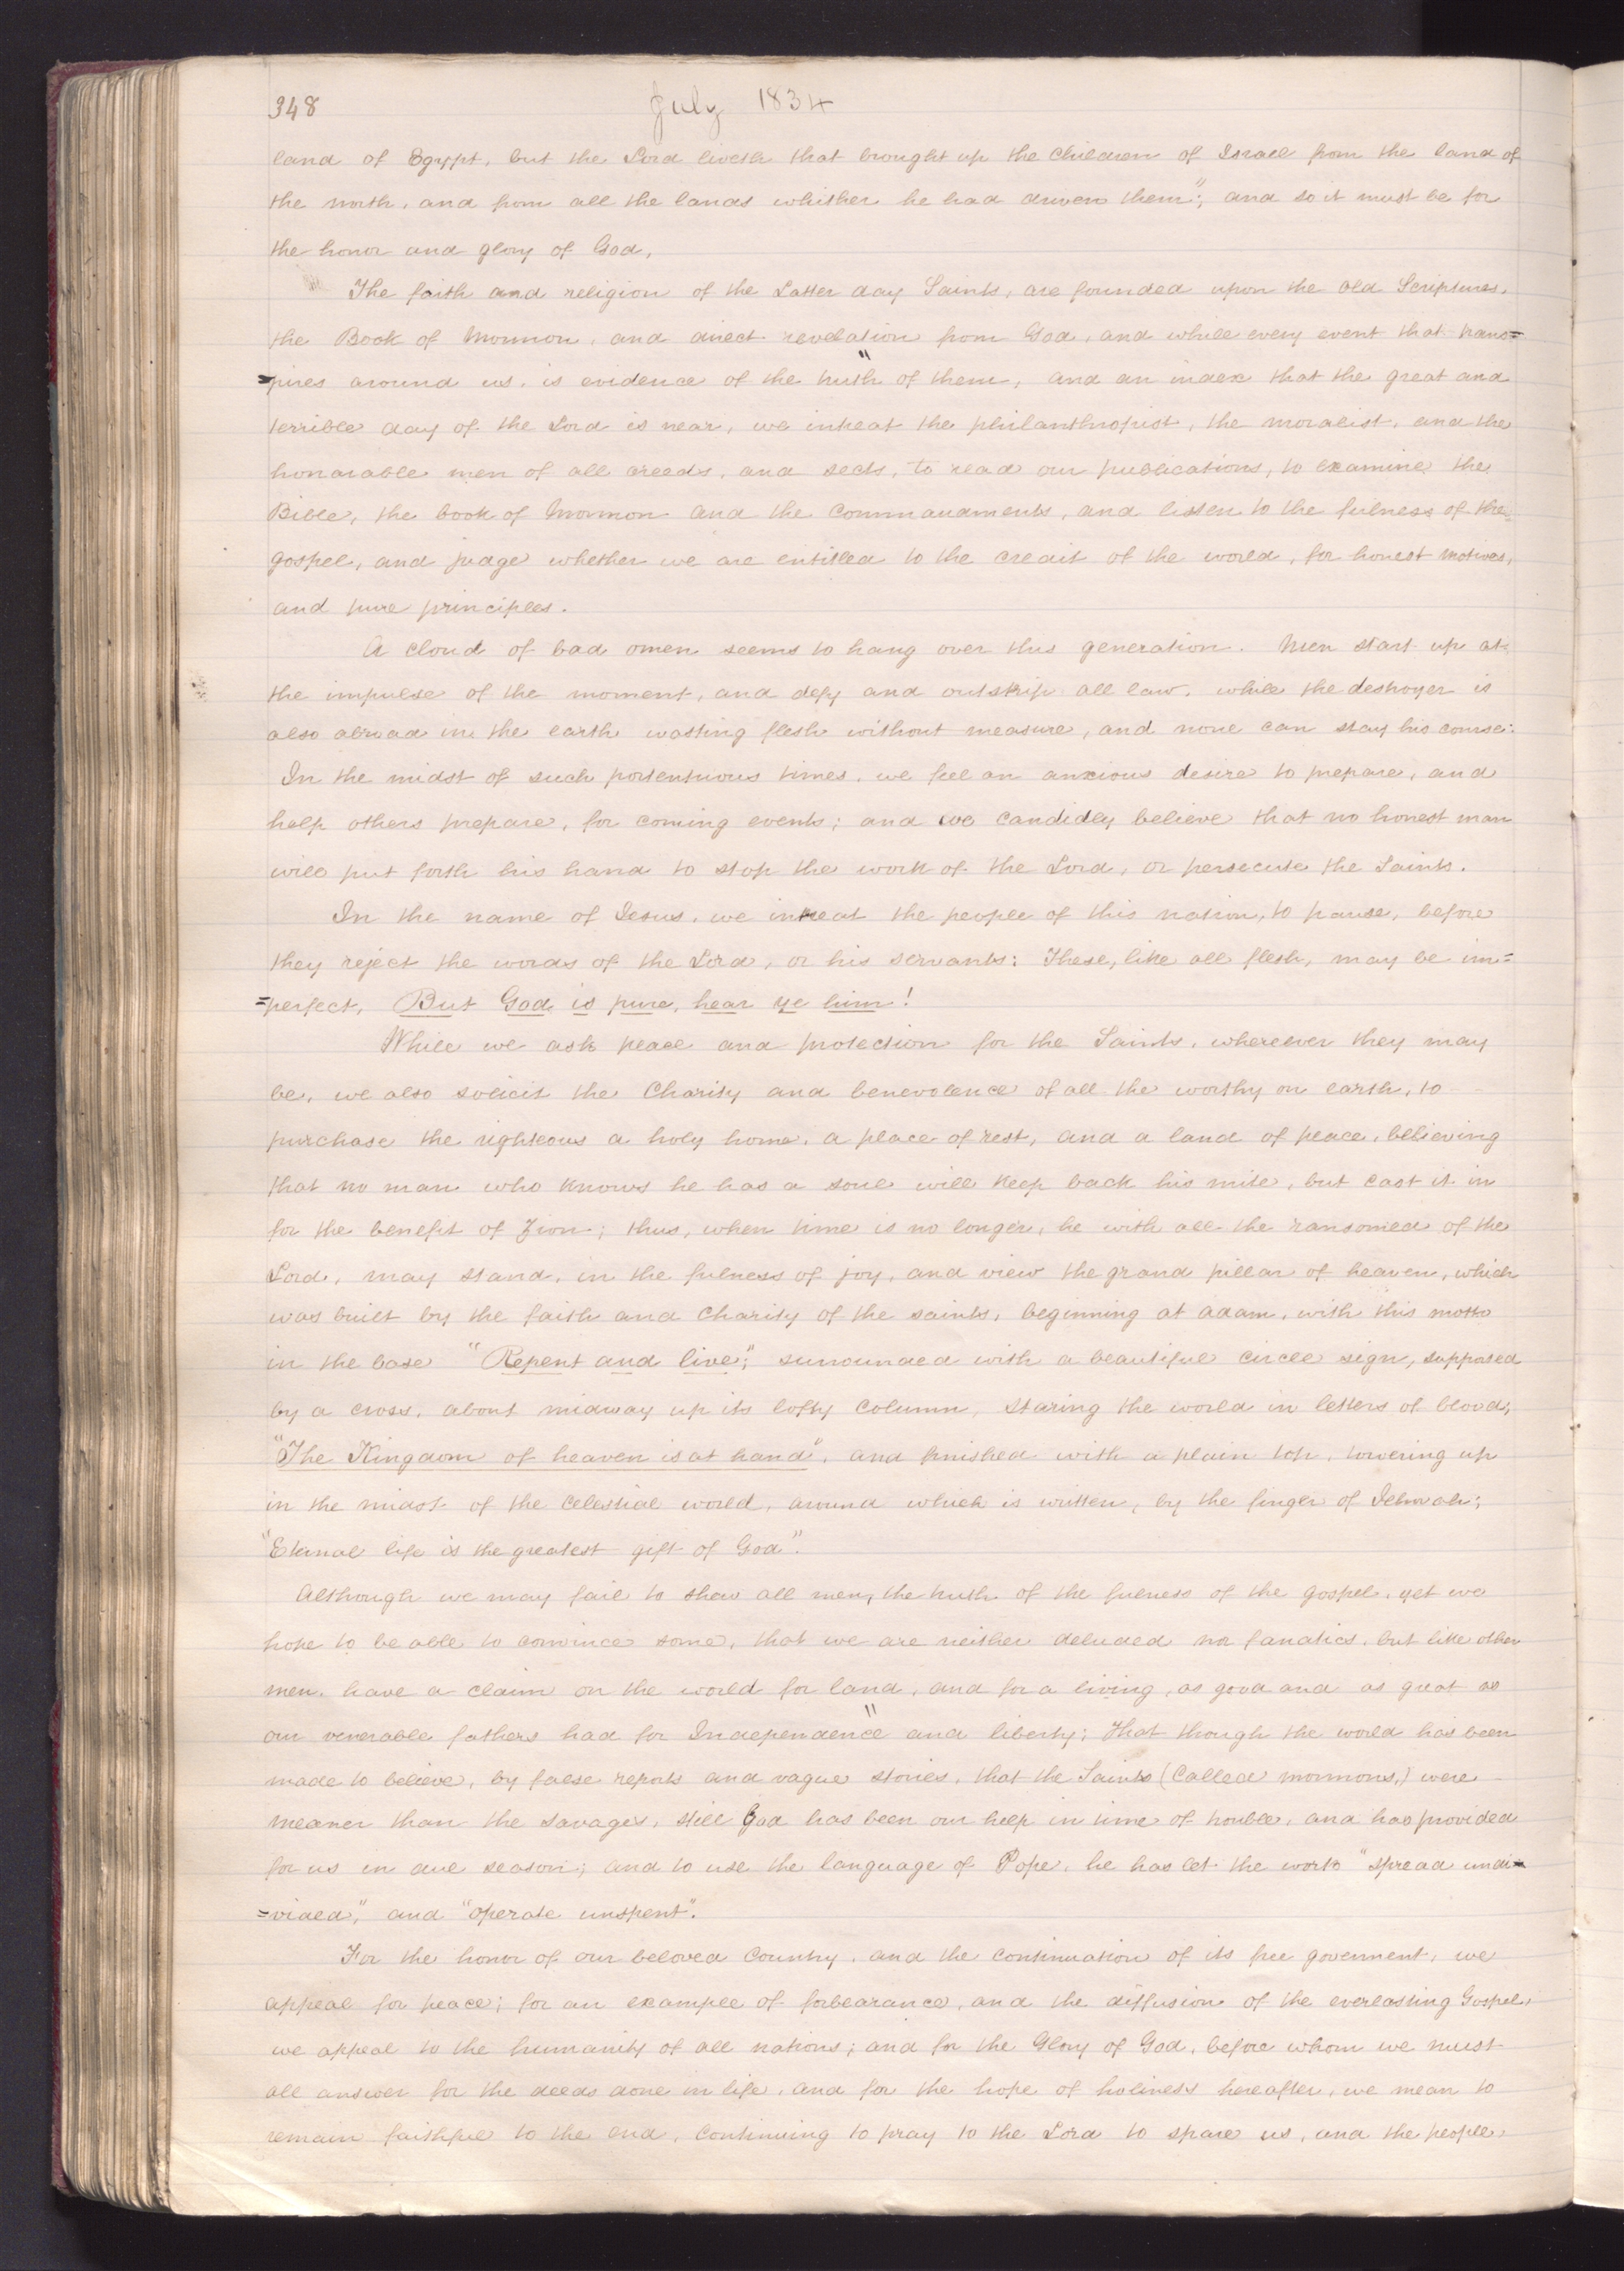 348
July 1834
land of Egypt, but the Lord liveth that brought up the children of Israel from the land of
the north, and from all the lands whither he had driven them"; and so it must be for
the honor and glory of God,
The faith and religion of the Latter day Saints, are founded upon the old Scriptures,
the Book of Mormon, and direct revelation from God, and while every event that trans=
=pires around us, is evidence of the truth of them, and an index that the great and
terrible day of the Lord is near, we intreat the philanthropist, the moralist, and the
honorable men of all creeds, and sects, to read our publications, to examine the
Bible, the book of Mormon and the commandments, and listen to the fulness of the
gospel, and judge whether we are entitled to the credit of the world, for honest motives,
and pure principles.
A cloud of bad omen seems to hang over this generation. Men start up at
the impulse of the moment, and defy and outstrip all law, while the destroyer is
also abroad in the earth wasting flesh without measure, and none can stay his course:
In the midst of such portentuous times, we feel an anxious desire to prepare, and
help others prepare, for coming events; and we candidly believe that no honest man
will put forth his hand to stop the work of the Lord, or persecute the Saints.
In the name of Jesus, we intreat the people of this nation, to pause, before
they reject the words of the Lord, or his servants: These, like all flesh, may be im=
=perfect, But God is pure, hear ye him!
While we ask peace and protection for the Saints, wherever they may
be, we also solicit the Charity and benevolence of all the worthy on earth, to
purchase the righteous a holy home, a place of rest, and a land of peace, believing
that no man who knows he has a soul will keep back his mite, but cast it in
for the benefit of Zion; thus, when time is no longer, he with all the ransomed of the
Lord, may stand, in the fulness of joy, and view the grand pillar of heaven, which
was built by the faith and charity of the saints, beginning at adam, with this motto
in the base "Repent and live;" surrounded with a beautiful circle sign, supposed
by a cross, about midway up its lofty column, staring the world in letters of blood,
"The Kingdom of heaven is at hand", and finished with a plain top, towering up
in the midst of the celestial world, around which is written, by the finger of Jehovah;
"Eternal life is the greatest gift of God".
Although we may fail to shew all men, the truth of the fulness of the gospel, yet we
hope to be able to convince some, that we are neither deluded nor fanatics, but like other
men, have a claim on the world for land, and for a living, as good and as great as
our venerable fathers had for Independence and liberty; that though the world has been
made to believe, by false reports and vague stories, that the Saints (called mormons,) were
meaner than the savages, still God has been our help in time of trouble, and has provided
for us in due season; and to use the language of Pope, he has let the work "spread undi=
=vided," and "operate unspent".
For the honor of our beloved country, and the continuation of its free government, we
appeal for peace; for an example of forbearance, and the diffusion of the everlasting Gospel,
we appeal to the humanity of all nations; and for the Glory of God, before whom we must
all answer for the deeds done in life, and for the hope of holiness hereafter, we mean to
remain faithful to the end, continuing to pray to the Lord to spare us, and the people